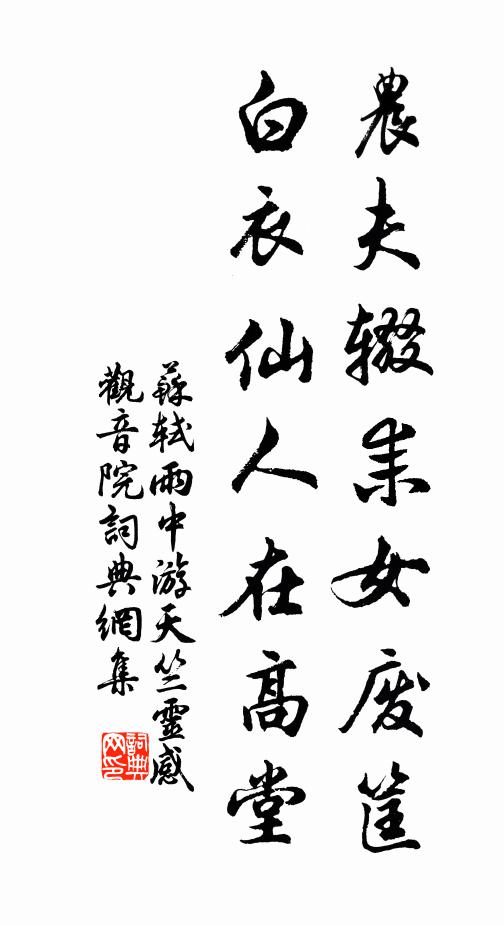 農夫辍耒女废筐
白衣仙人在高堂
蘇轼雨中游天竺靈感
觀音院詞典網集
詞典网印